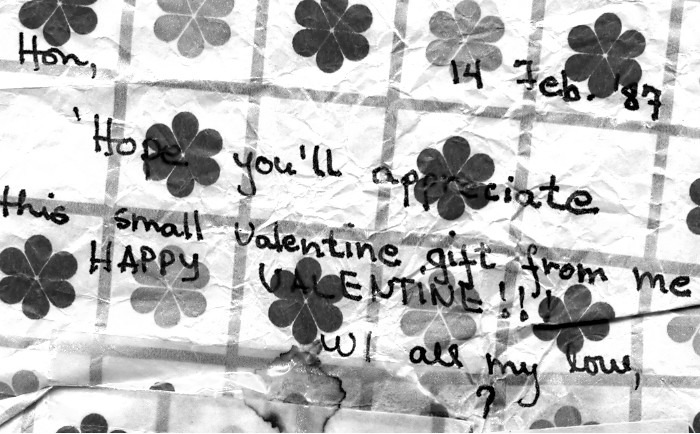 Hon,
14 Feb. '87
'Hope you'll appreciate
this small Valentine gift from me
HAPPY VALENTINE!!!
W/ all my love,
?